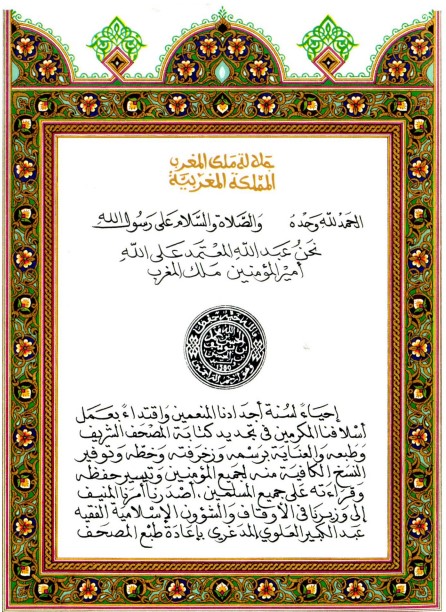 جلالة ملك المغرب
المملكة المغربية
الحمد لله وحده والصلاة والسلام على رسول الله
نحن عبد الله المعتمد على الله
أمير المؤمنين ملك المغرب
إحياءً لسنة أجدادنا المنعمين واقتداءً بعمل
أسلافنا المكرمين في تجديد كتابة المصحف الشريف
وطبعه والعناية برسمه وزخرفته وخطه وتوفير
النسخ الكافية منه لجميع المؤمنين وتيسير حفظه
وقراءته على جميع المسلمين، أصدرنا أمرنا المنيف
إلى وزيرنا في الأوقاف والشؤون الإسلامية الفقيه
عبد الكبير العلوي المدغري بإعادة طبع المصحف